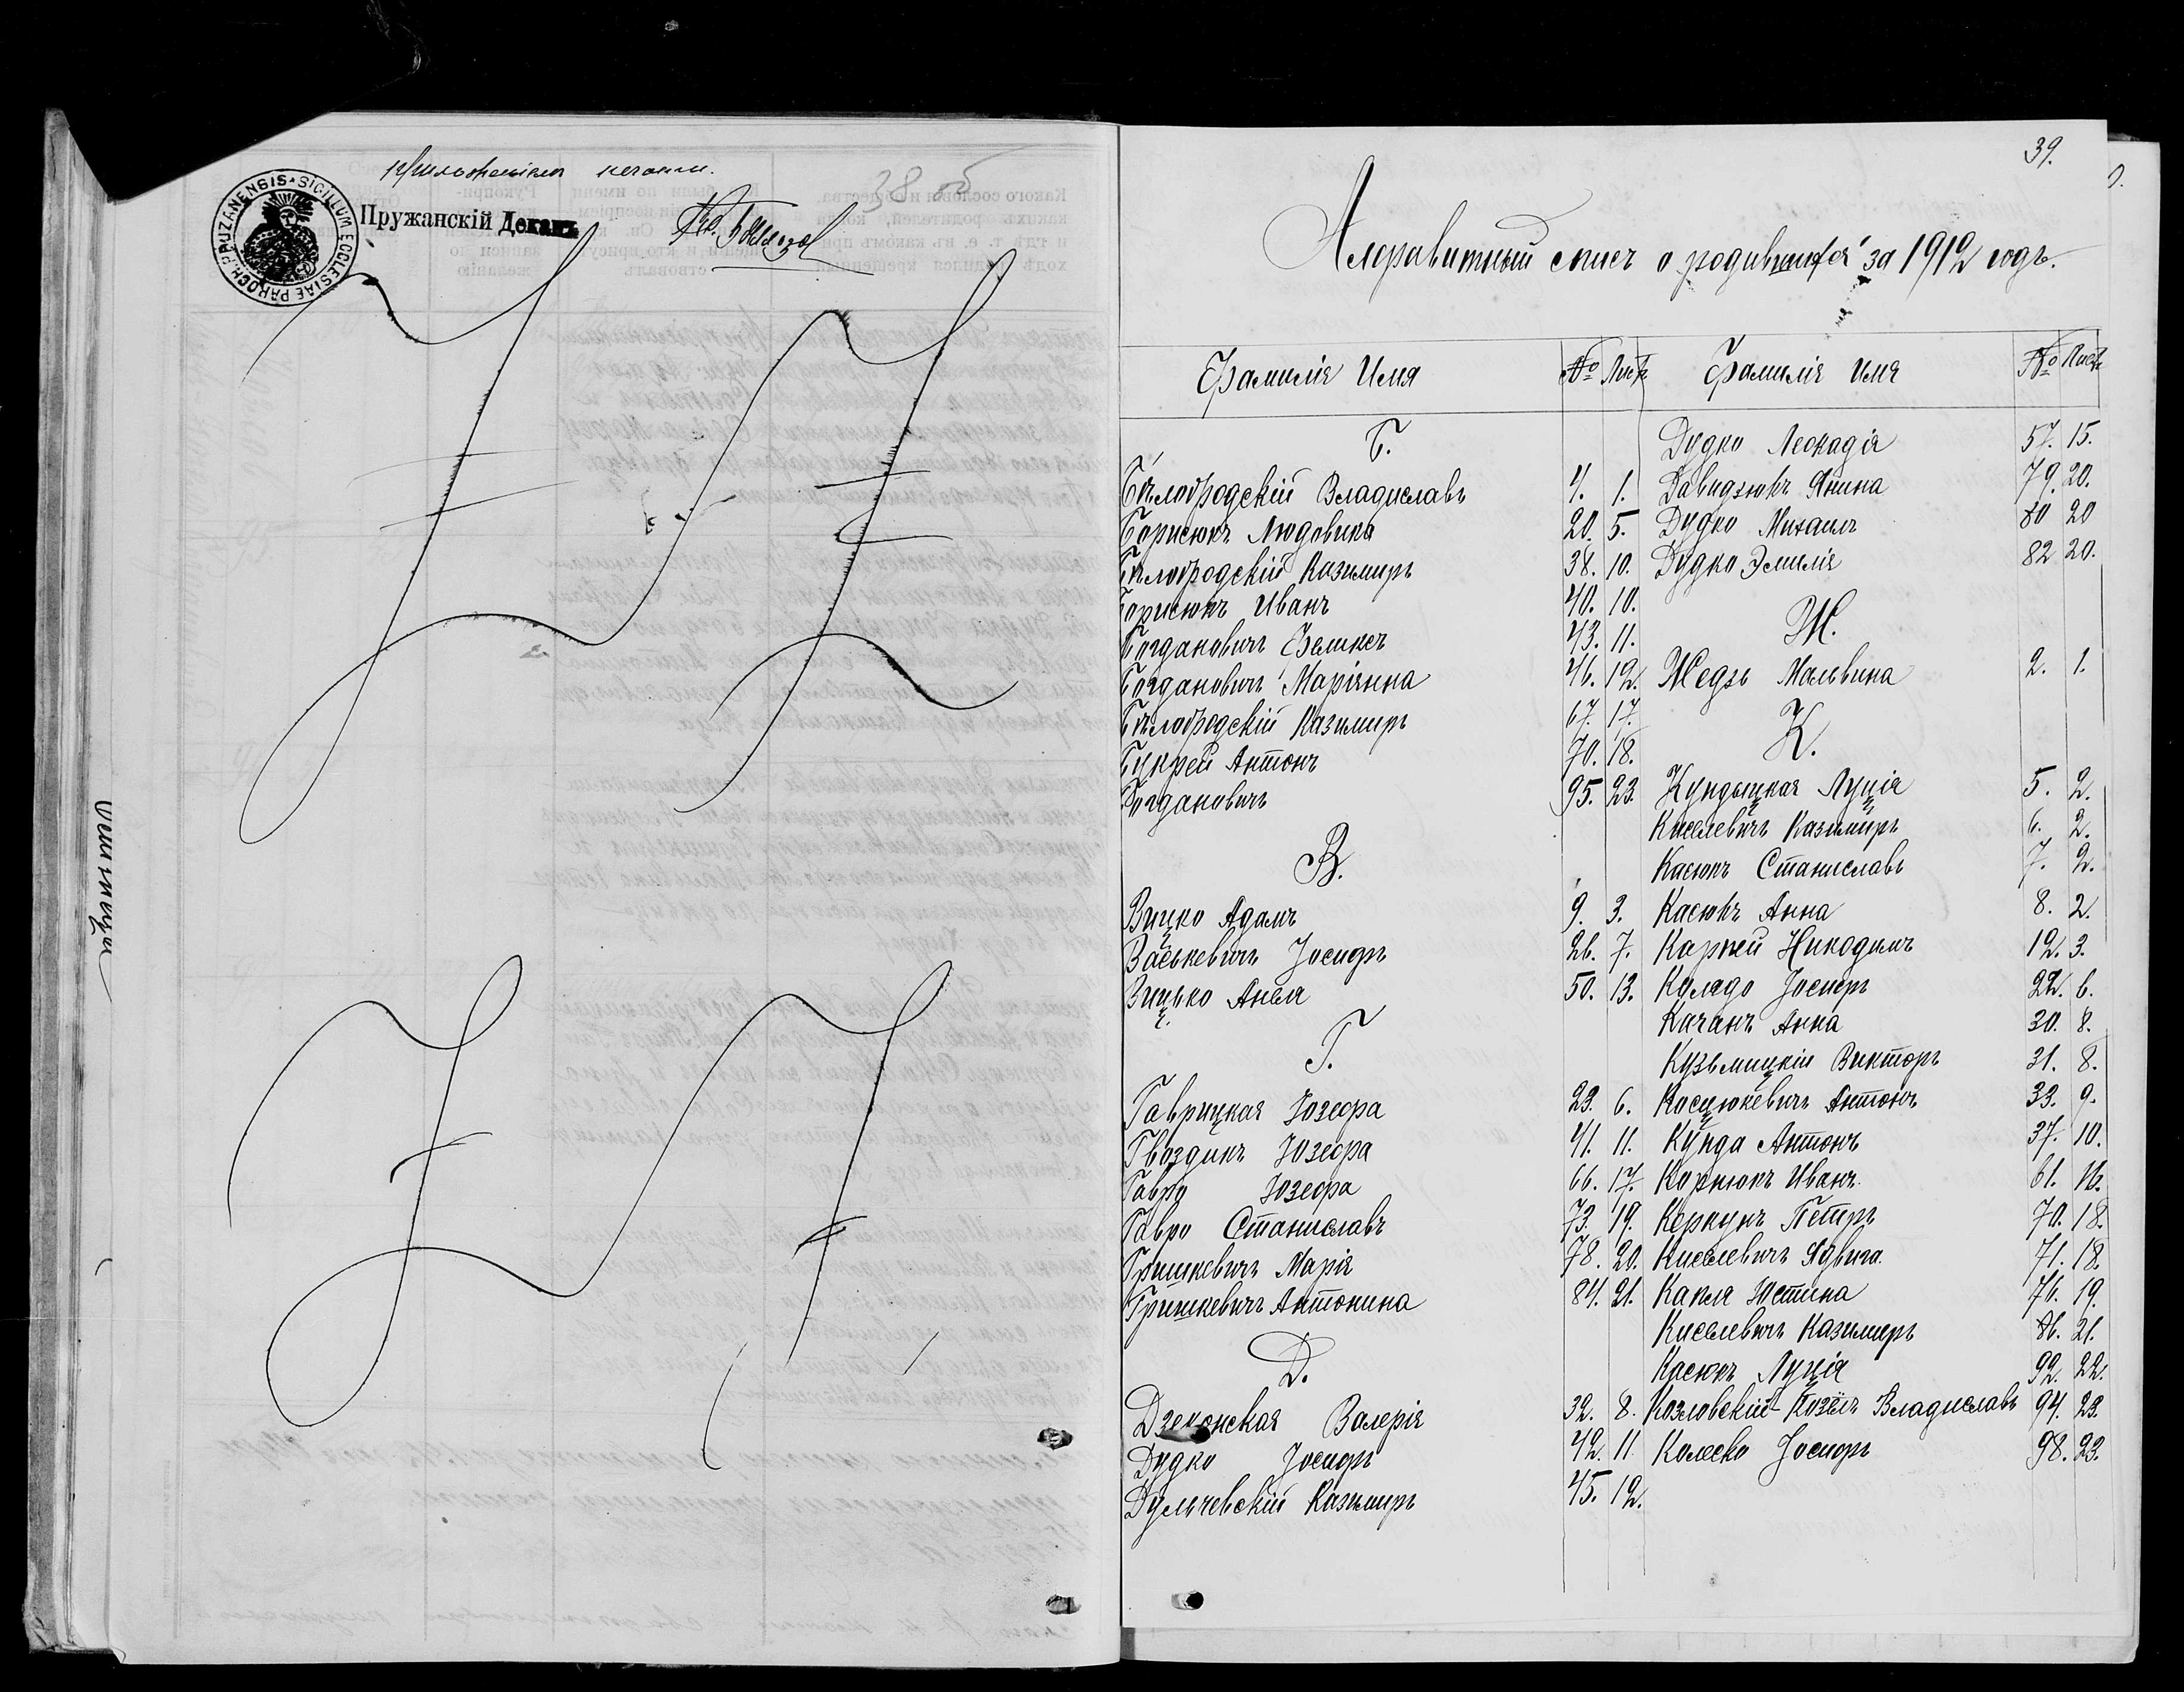 38 об
приложеніемъ печати.
SIGILLUM ECCLESIAE PAROCH. PRUZANENSIS
Пружанскій Деканъ
39.
Алфавитный списъ о родившихся за 1912 годъ.
Фамилія Имя № Листъ
Б.
Бѣлобродскій Владиславъ 4. 1.
Борисюкъ Людовика 20. 5.
Бѣлобродскій Казимиръ 38. 10.
Борисюкъ Иванъ 40. 10.
Богдановичъ Феликсъ 43. 11.
Богдановичъ Маріянна 46. 12.
Бѣлобродскій Казимиръ 67. 17.
Букрей Антонъ 70. 18.
Богдановичъ 95. 23.
В.
Вицко Адамъ 9. 3.
Васькевичъ Іосифъ 26. 7.
Вицько Анеля 50. 13.
Г.
Гаврицкая Юзефа 23. 6.
Гвоздикъ Юзефа 41. 11.
Гавро Юзефа 66. 17.
Гавро Станиславъ 73. 19.
Гришкевичъ Марія 78. 20.
Гришкевичъ Антонина 84. 21.
Д.
Дзеконская Валерія 32. 8.
Дудко Іосифъ 42. 11
Дульчевскій Казимиръ 45. 12.
Фамилія Имя № Листъ
Дудко Леокадія 57. 15.
Давидзюкъ Янина 79. 20.
Дудко Михаилъ 80 20
Дудко Эмилія 82 20.
Ж.
Жедзь Мальвина 2. 1.
К.
Кундыцкая Луція 5. 2.
Киселевичъ Казимиръ 6. 2.
Касюкъ Станиславъ 7. 2.
Касюкъ Анна 8. 2.
Карпей Никодимъ 12. 3.
Колядо Іосифъ 22. 6.
Качанъ Анна 30. 8.
Кузьмицкій Викторъ 31. 8.
Косцюкевичъ Антонъ 33. 9.
Кунда Антонъ 37. 10.
Корнюкъ Иванъ. 61. 16.
Керкунъ Петръ 70. 18.
Киселевичъ Ядвига. 71. 18.
Капля Юстина 76. 19.
Киселевичъ Казимиръ 86. 21.
Касюкъ Луція 92. 22.
Козловскій-Козёлъ Владиславъ 94. 23.
Колеско Іосифъ 98. 23.